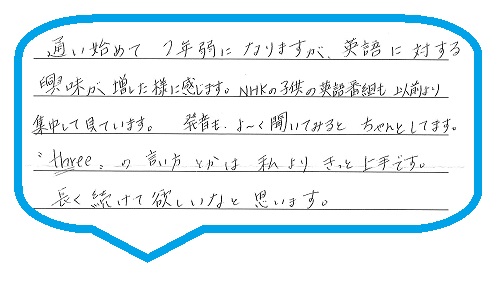 通い始めて 2年弱に なりますが、英語に対する
興味が 増した様に感じます。NHKの子供の英語番組も 以前より
集中して見ています。 発音も、よ〜く聞いてみると ちゃんとしてます。
"three„ の 言い方 とかは 私より きっと上手です。
長く 続けて 欲しいなと 思います。